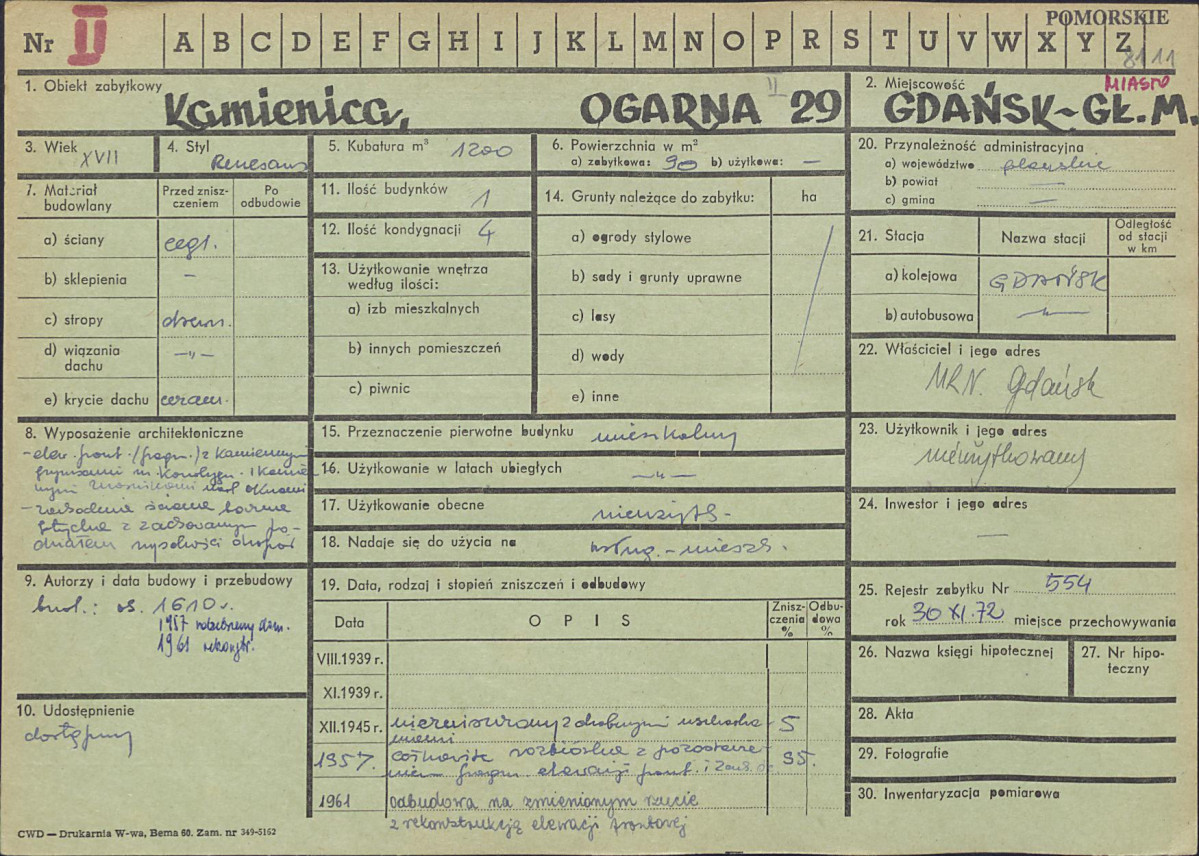 POMORSKIE
Nr II A B C D E F G H I J K L M N O P R S T U V W X Y Z
8111
1. Obiekt zabytkowy
Kamienica, OGARNA II 29
2. Miejscowość MIASTO
GDAŃSK-GŁ.M.
3. Wiek XVII
4. Styl Renesans
5. Kubatura m³ 1200
6. Powierzchnia w m²
a) zabytkowa: 90 b) użytkowa: —
20. Przynależność administracyjna
a) województwo gdańskie
b) powiat —
c) gmina —
7. Materiał budowlany
Przed zniszczeniem
Po odbudowie
a) ściany cegł.
b) sklepienia –
c) stropy drewn.
d) wiązania dachu —„—
e) krycie dachu ceram.
11. Ilość budynków 1
12. Ilość kondygnacji 4
13. Użytkowanie wnętrza
według ilości:
a) izb mieszkalnych
b) innych pomieszczeń
c) piwnic
14. Grunty należące do zabytku: ha
a) ogrody stylowe
b) sady i grunty uprawne
c) lasy
d) wody
e) inne
21. Stacja
Nazwa stacji
Odległość od stacji w km
a) kolejowa GDAŃSK
b) autobusowa —„—
22. Właściciel i jego adres
MRN. Gdańsk
8. Wyposażenie architektoniczne
- elew. front. (fragm.) z kamiennymi
gzymsami m. kondygn. i kamien
nymi nad oknami
- zachodnia ściana
z zachowanym po-
działem wysokości
15. Przeznaczenie pierwotne budynku mieszkalny
16. Użytkowanie w latach ubiegłych —„—
17. Użytkowanie obecne nieużytk-
18. Nadaje się do użycia na usług.-mieszk.
23. Użytkownik i jego adres
nieużytkowany
24. Inwestor i jego adres
—
9. Autorzy i data budowy i przebudowy
bud.: ok. 1610 r.
1957 rozebrany
1961 rekonstr.
10. Udostępnienie
dostępny
19. Data, rodzaj i stopień zniszczeń i odbudowy
Data OPIS Zniszczenia % Odbudowa %
VIII.1939 r.
XI.1939 r.
XII.1945 r. niezniszczony z drobnymi uszkodze-
niami 5
1957. całkowita rozbiórka z pozostawie-
niem fragm elewacji front. i 95.
1961 odbudowa na zmienionym rzucie
z rekonstrukcją elewacji frontowej
25. Rejestr zabytku Nr 554
rok 30 XI. 72 miejsce przechowywania
26. Nazwa księgi hipotecznej
27. Nr hipoteczny
28. Akta
29. Fotografie
30. Inwentaryzacja pomiarowa
CWD — Drukarnia W-wa, Bema 60. Zam. nr 349-5162